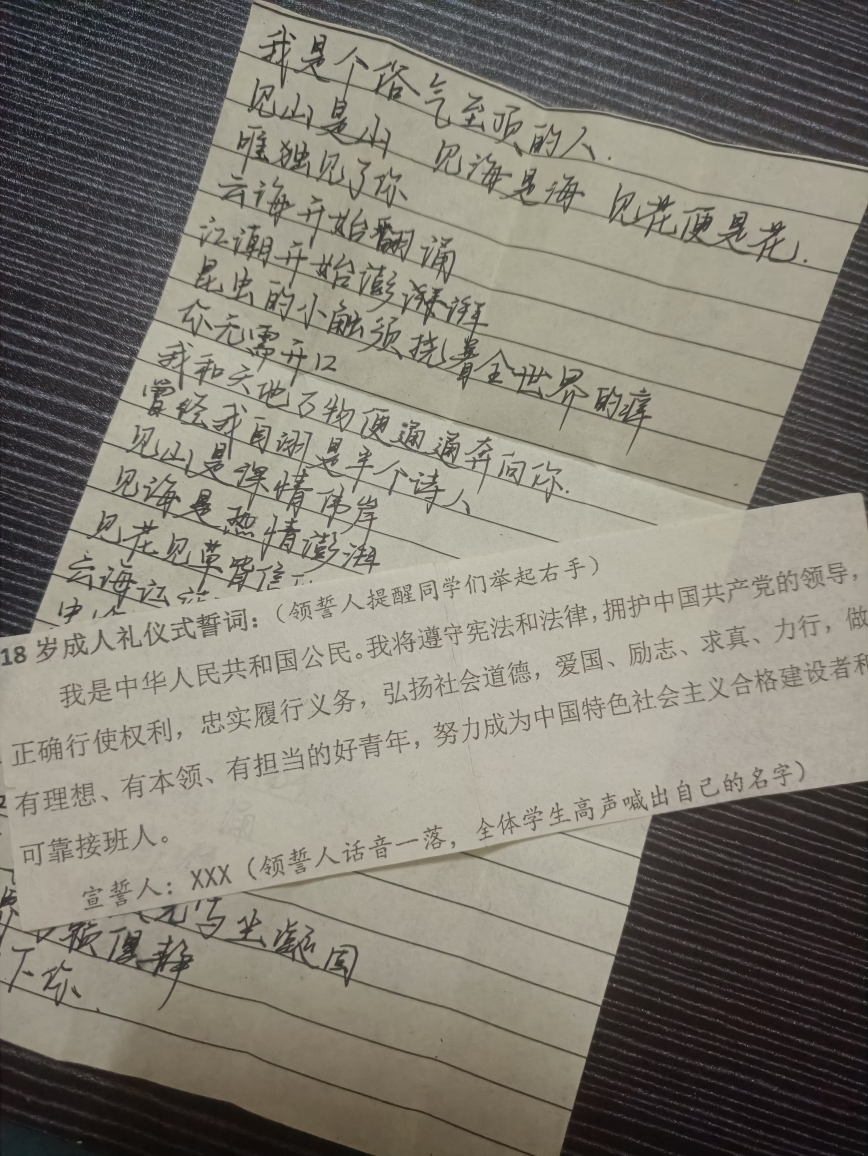 我是个俗气至顶的人.
见山是山 见海是海 见花便是花.
唯独见了你
云海开始翻涌
江潮开始澎湃
昆虫的小触须挠着全世界的痒
你无需开口
我和天地万物便通通奔向你.
曾经我自诩是半个诗人
见山是深情伟岸
见海是热情澎湃
见花见草皆信
云海江
18岁成人礼仪式誓词：（领誓人提醒同学们举起右手）
我是中华人民共和国公民。我将遵守宪法和法律，拥护中国共产党的领导，
正确行使权利，忠实履行义务，弘扬社会道德，爱国、励志、求真、力行，做
有理想、有本领、有担当的好青年，努力成为中国特色社会主义合格建设者和
可靠接班人。
宣誓人：XXX（领誓人话音一落，全体学生高声喊出自己的名字）
凝固
俱静
下你.